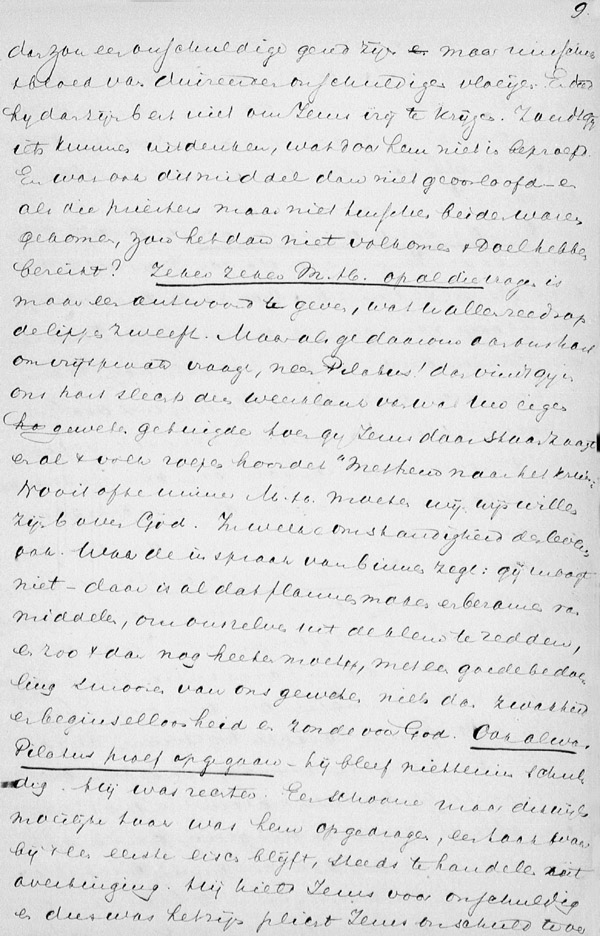 9.
dan zou een onschuldige gered zijn en maar misschien
t bloed van duizenden onschuldigen vloeijen. En deed
hij dan zijn best niet om Jezus vrij te krijgen. Zoudt gij
iets kunnen uitdenken, wat door hem niet is beproefd.
En was ook dit middel dan niet geoorloofd – en
als die priesters maar niet tusschen beide waren
gekomen, zou het dan niet volkomen 't doel hebben
bereikt? Zeker zeker M. H. op al die vragen is
maar een antwoord te geven, wat U alreeds op
de lippen zweeft. Maar als ge daarom aan ons hart
om vrijspraak vraagt, neen Pilatus! dan vindt gij in
ons hart slechts den weerklank van wat Uw eigen
geweten getuigde toen gij Jezus daar staan zaagt
en al 't volk roepen hoordet "Met hem naar het kruis."
Nooit of te nimmer M. H. moeten wij wijs willen
zijn boven God. In welke omstandigheid des levens
ook. Waar de inspraak van binnen zegt: gij moogt
niet – daar is al dat plannen maken en beramen van
middelen, om ons zelven uit de klem te redden,
en zoo 't dan nog heeten moet, met een goede bedoe-
ling smooren van ons geweten niets dan zwakheid
en beginselloosheid en zonde voor God. Ook al was
Pilatus proef opgegaan – hij bleef niettemin schul-
dig. Hij was rechter. Een schoone maar dikwijls
moeilijke taak was hem opgedragen, een taak waar-
bij 't een eerste eisch blijft, steeds te handelen uit
overtuiging. Hij hield Jezus voor onschuldig
en dus was het zijn plicht Jezus onschuld te